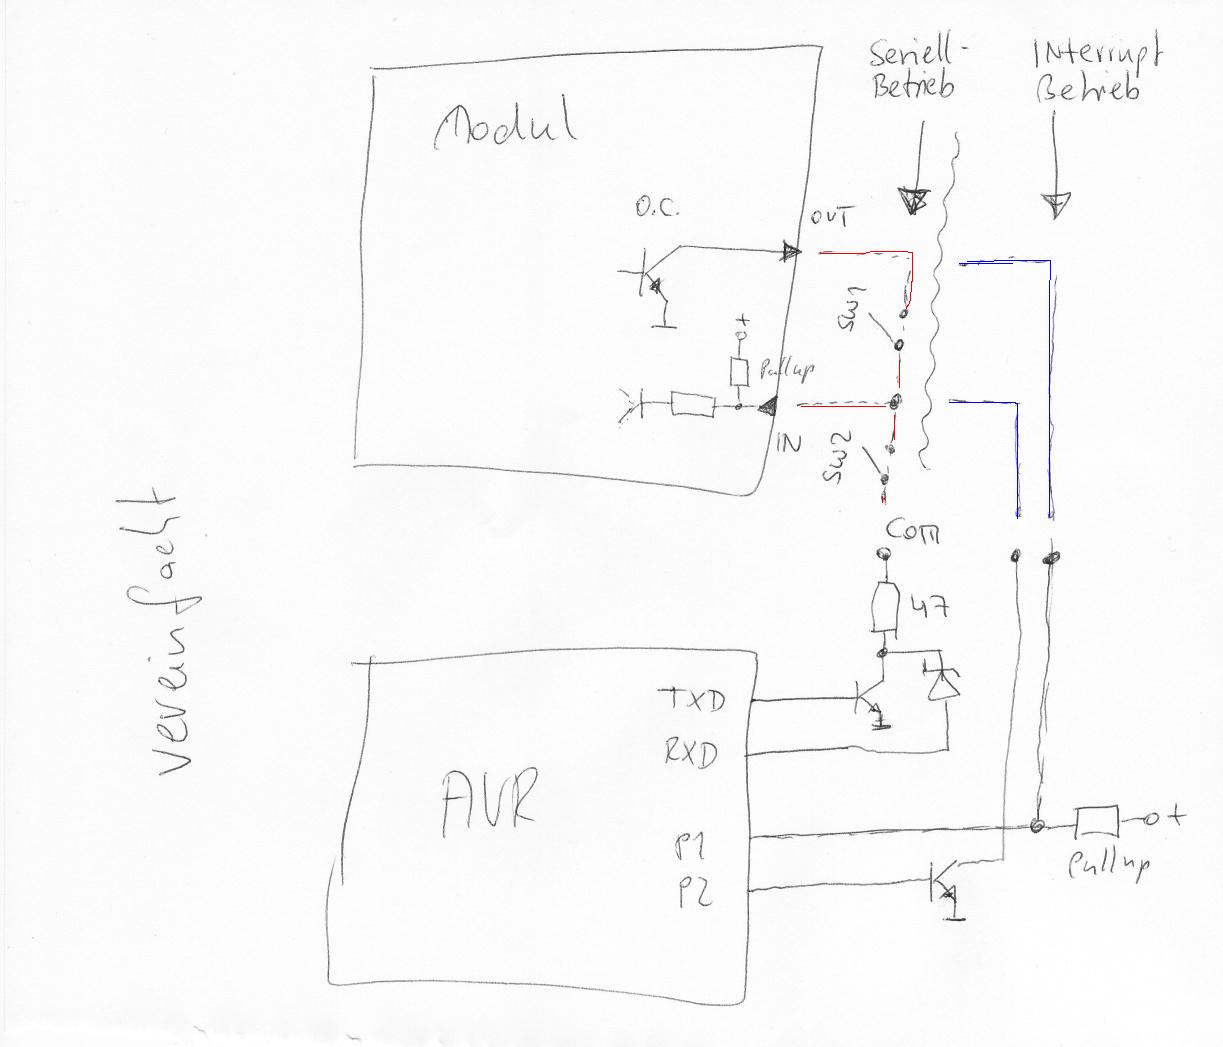 Seriell-
Betrieb
INterrupt
Betrieb
Modul
O.C.
OUT
SW1
+
Pullup
IN
SW2
COM
47
vereinfacht
TXD
RXD
AVR
P1
P2
+
Pullup